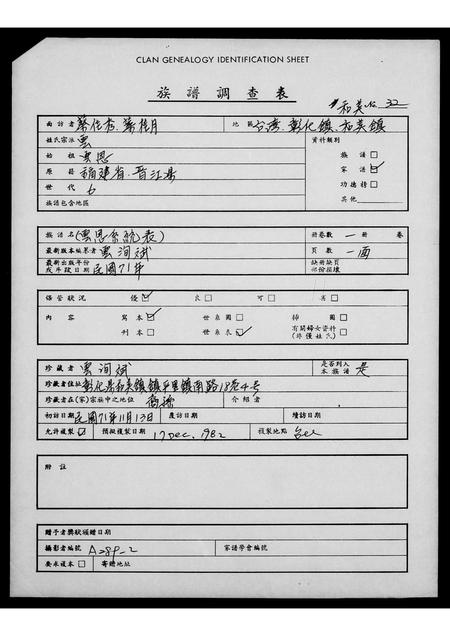 CLAN GENEALOGY IDENTIFICATION SHEET
族譜調查表
和美 No. 32
面訪者 地區 台灣.彰化縣.和美鎮
姓氏宗派 雲 資料類別
始祖 雲恩 族譜 □
原籍 福建省.晋江縣 家譜 ☑
世代 6 功德榜 □
族譜包含地區 其他
族譜名 (雲恩系統表) 冊卷數 一冊 卷
最新版本編纂者 雲洵斌 頁數 一面
最新出版年份或手段日期 民國71年 缺冊缺頁部份損壞
保管狀況 優 ☑ 良 □ 可 □ 劣 □
內容 寫本 ☑ 世系圖 □ 掃圖 □
刊本 □ 世系表 ☑ 有關婦女資料(非僅姓氏) □
珍藏者 雲洵斌 是否列入本族譜 是
珍藏者住址 彰化縣和美鎮鎮平里鎮南路18巷4號
珍藏者在(家)宗族中之地位 裔孫 介紹者
初訪日期 民國71年11月13日 覆訪日期 續訪日期
允許複製 ☑ 預擬複製日期 17 Dec. 1982 複製地點
附註
贈予者獎狀頒贈日期
攝影者編號 A289-2 家譜學會編號
要求複本 □ 寄贈地址